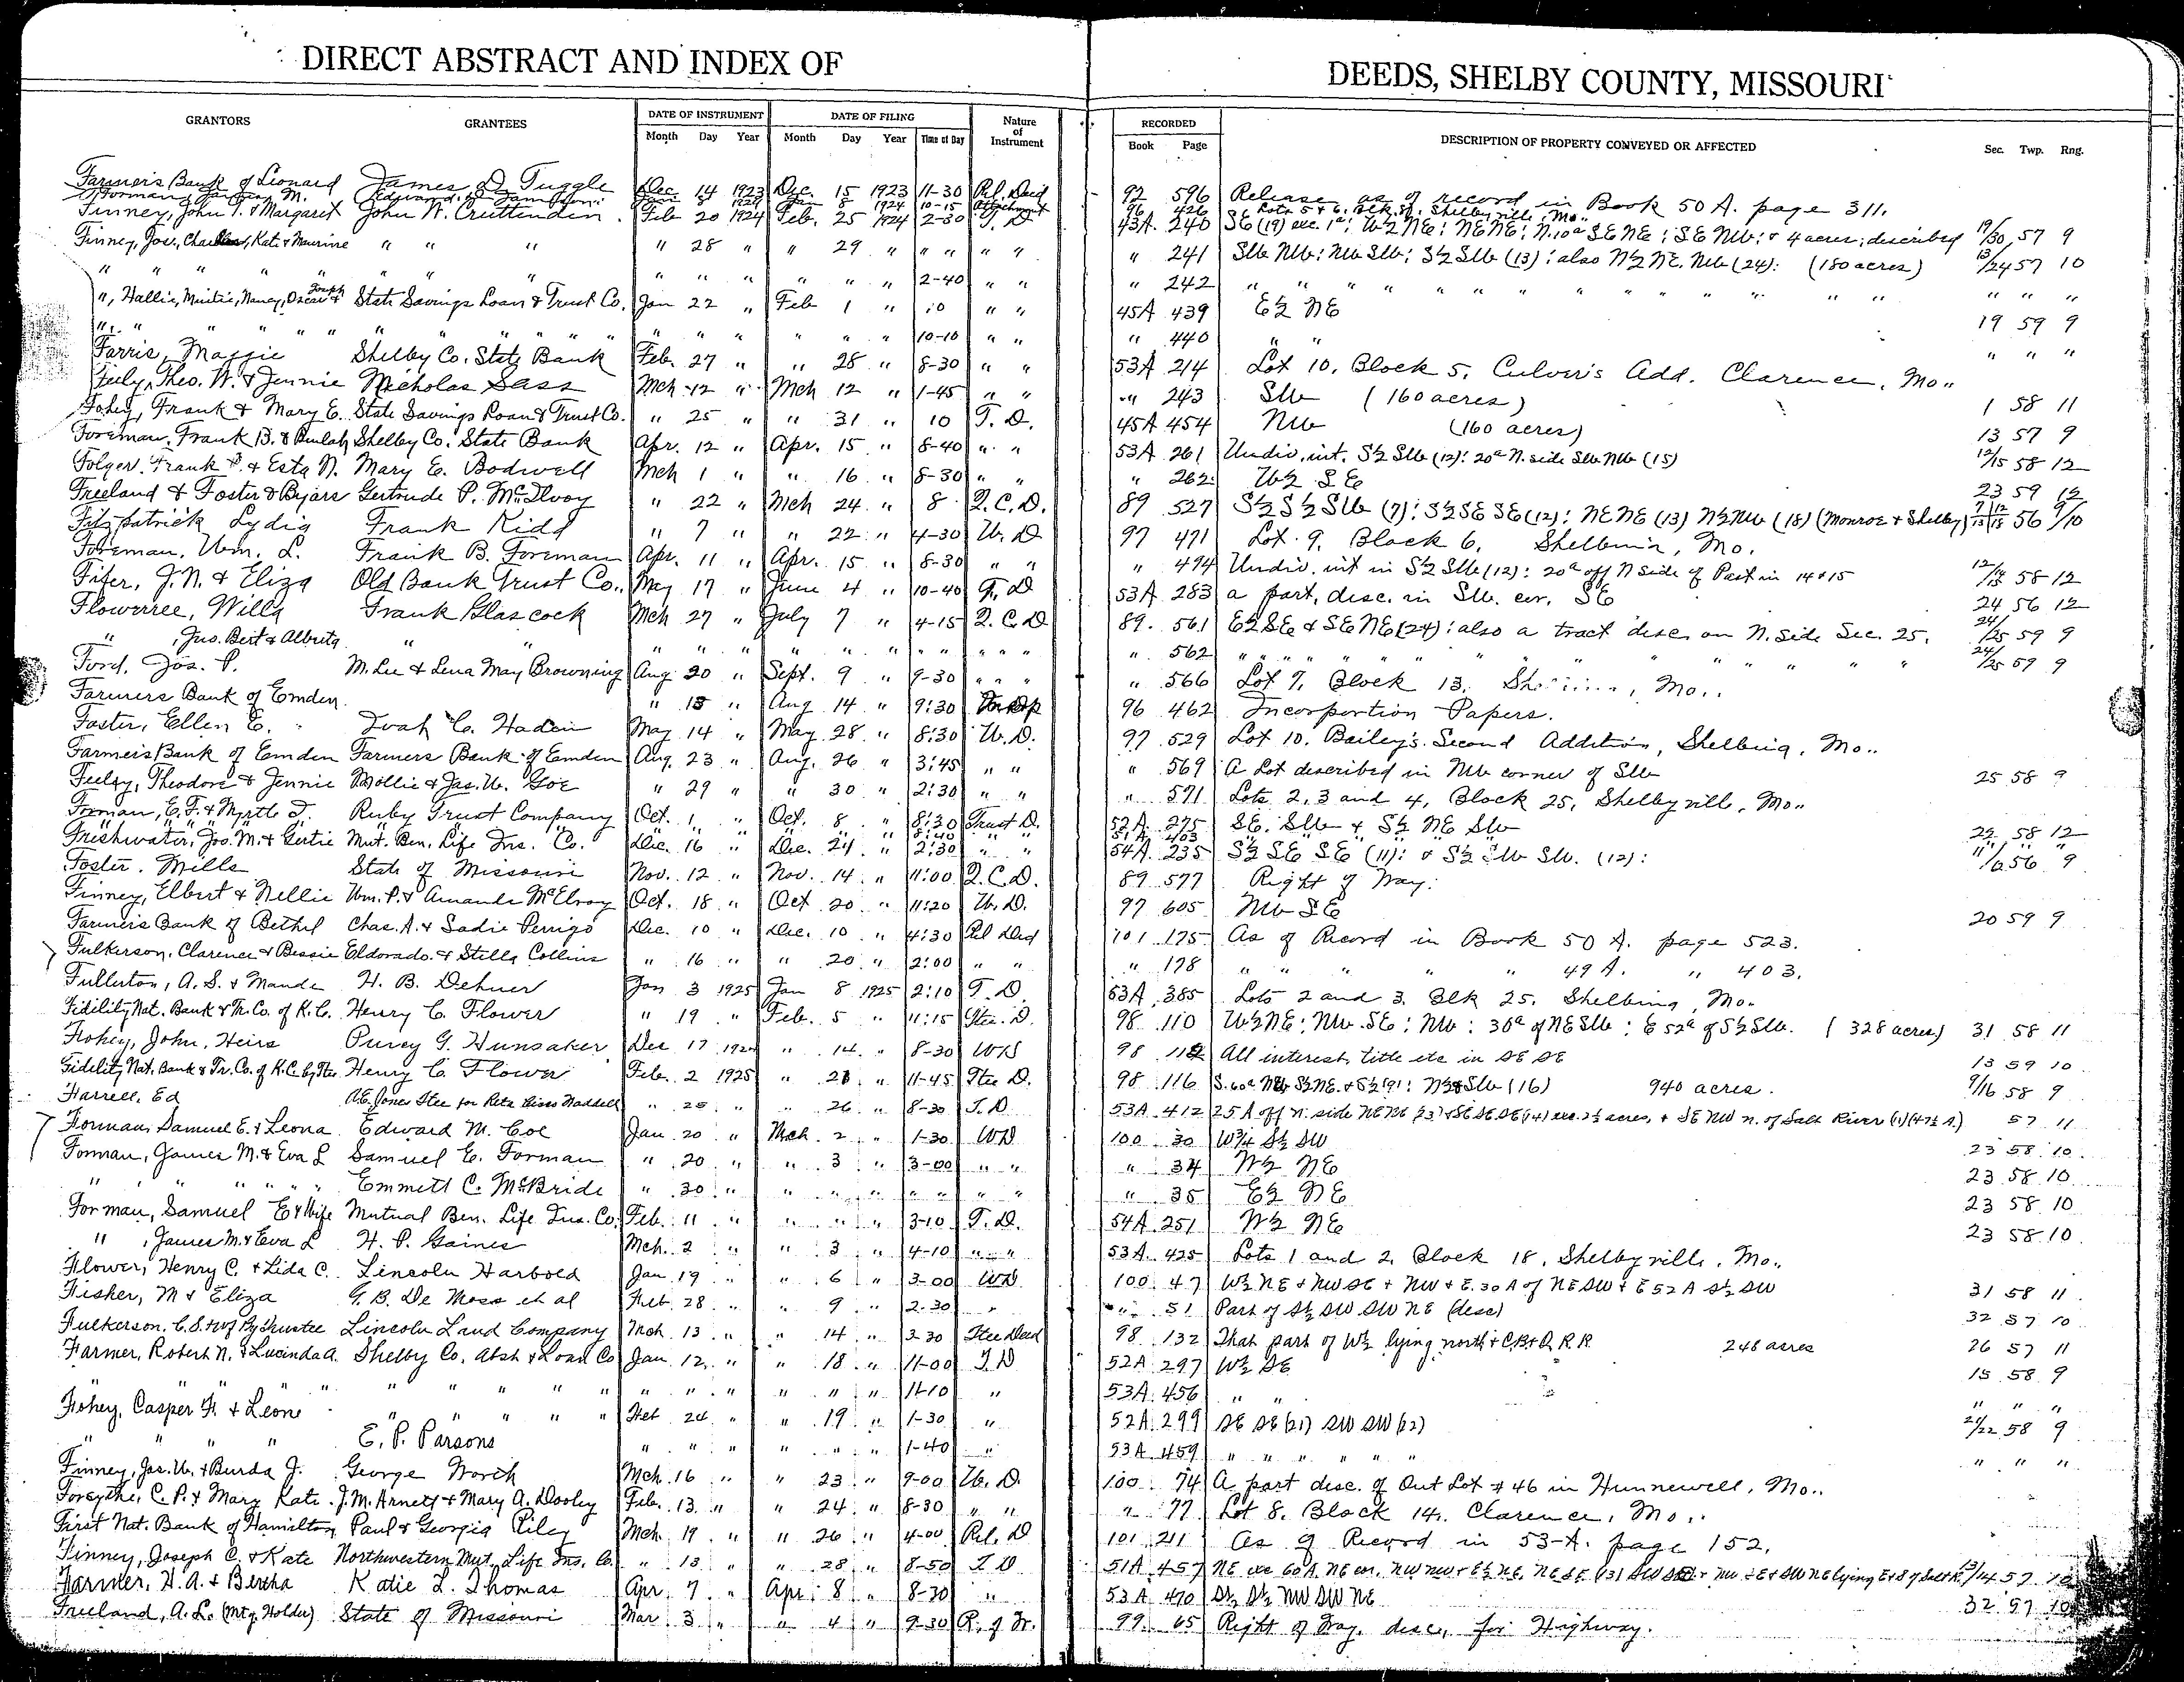 DIRECT ABSTRACT AND INDEX OF DEEDS, SHELBY COUNTY, MISSOURI
GRANTORS GRANTEES DATE OF INSTRUMENT DATE OF FILING Nature of Instrument RECORDED DESCRIPTION OF PROPERTY CONVEYED OR AFFECTED Sec. Twp. Rng.
Month Day Year Month Day Year Time of Day Book Page
Farmers Bank of Leonard James D. Tuggle Dec. 14 1923 Dec. 15 1923 11-30 Rel. Deed 92 596 Release as of record in Book 50 A. page 311.
Forman, M. 10-15 96 426 Lots 5 & 6, Blk. Shelbyville, Mo.
Finney, John T. & Margaret John W. Crittendin Feb 20 1924 Feb. 25 1924 2-30 T. D 43A. 240 SE (19) exc. 1a; W½ NE; NENE; N.10a SENE; SE NW; & 4 acres, described 19/30 57 9
Finney, Jos., Kate & Maurine " " " " 28 " " 29 " " " " " " 241 SW NW; NW SW; S½ SW (13); also N½ NE. NW (24): (180 acres) 13/24 57 10
" " " " " " " " " " " " 2-40 " " " 242 " " " " " " " " " " "
", Hallie, Mintie, Nancy, Oscar & Joseph State Savings Loan & Trust Co. Jan 22 " Feb 1 " 10 " " 45A 439 E½ NE 19 59 9
" " " " " " " " " " " " " " " " 10-10 " " " 440 " " " " "
Farris, Maggie Shelby Co. State Bank Feb. 27 " " 28 " 8-30 " " 53A 214 Lot 10, Block 5, Culver's Add. Clarence, Mo.
Feely, Theo. W. & Jennie Nicholas Sass Mch 12 " Mch 12 " 1-45 " " " 243 SW (160 acres) 1 58 11
Fohey, Frank & Mary E. State Savings Loan & Trust Co. " 25 " " 31 " 10 T. D. 45A 454 NW (160 acres) 13 57 9
Foreman, Frank B. & Beulah Shelby Co. State Bank Apr. 12 " Apr. 15 " 8-40 " " 53A 261 Undiv. int. S½ SW (12): 20a N. side SW NW (15) 12/15 58 12
Folger, Frank P. & Esta N. Mary E. Bodwell Mch 1 " " 16 " 8-30 " " " 262 W½ SE 23 59 12
Freeland & Foster & Byars Gertrude P. McIlvoy " 22 " Mch 24 " 8 Q. C. D. 89 527 S½ S½ SW (7): S½ SE SE (12): NENE (13) N½ NW (18) (Monroe & Shelby) 56 9/10
Fitzpatrick Lydia Frank Kidd " 7 " " 22 " 4-30 W. D. 97 471 Lot 9, Block 6, Shelbina, Mo.
Foreman, Wm. L. Frank B. Foreman Apr. 11 " Apr. 15 " 8-30 " " " 494 Undiv. int in S½ SW (12): 20a off N side of Part in 14 & 15 58 12
Fifer, J. N. & Eliza Old Bank Trust Co. May 17 " June 4 " 10-40 T. D 53A 283 a part, desc. in SW. cor. SE 24 56 12
Flowerree, Willa Frank Glascock Mch 27 " July 7 " 4-15 Q. C. D 89 561 E½ SE & SE NE (24): also a tract desc. on N. side Sec. 25. 24/25 59 9
" , Jno. Bert & Alberta " " " " " " " " " " " " " " 562 " " " " " " " " " " 24/25 59 9
Ford, Jos. P. M. Lee & Lena May Browning Aug 20 " Sept. 9 " 9-30 " " " " 566 Lot 7, Block 13, Mo.
Farmers Bank of Emden " 15 " Aug 14 " 9:30 96 462 Incorportion Papers.
Foster, Ellen E. Ivah C. Haden May 14 " May 28 " 8:30 W. D. 97 529 Lot 10, Bailey's Second Addition, Shelbina, Mo.
Farmers Bank of Emden Farmers Bank of Emden Aug. 23 " Aug. 26 " 3:45 " " " 569 A Lot described in NW corner of SW 25 58 9
Feely, Theodore & Jennie Mollie & Jas. W. Goe " 29 " " 30 " 2:30 " " " 571 Lots 2, 3 and 4, Block 25, Shelbyville, Mo.
Froman, E. F. & Myrtle J. Ruby Trust Company Oct. 1 " Oct. 8 " 8:30 Trust D. 52A 275 SE. SW & S½ NE SW 22 58 12
" " " " 8:40 " 51A 403 " "
Freshwater, Jos. M. & Gertie Mut. Ben. Life Ins. Co. Dec. 16 " Dec. 24 " 2:30 " " 54A. 235 S½ SE SE (11): & S½ SW SW. (12): 56 9
Foster, Mills State of Missouri Nov. 12 " Nov. 14 " 11:00 Q. C. D. 89 577 Right of Way.
Finney, Elbert & Nellie Wm. P. & Amanda McElroy Oct. 18 " Oct 20 " 11:20 W. D. 97 605 NW SE 20 59 9
Farmers Bank of Bethel Chas. A. & Sadie Perrigo Dec. 10 " Dec. 10 " 4:30 Rel Deed 101 175 As of Record in Book 50 A. page 523.
Fulkerson, Clarence & Bessie Eldorado & Stella Collins " 16 " " 20 " 2:00 " " " 178 " " " " " 49 A. " 403.
Fullerton, A. S. & Maude H. B. Dehner Jan 3 1925 Jan 8 1925 2:10 T. D. 53A 385 Lots 2 and 3, Blk 25, Shelbina, Mo.
Fidility Nat. Bank & Tr. Co. of K. C. Henry C. Flower " 19 " Feb. 5 " 11:15 Stee. D. 98 110 W½ NE; NW SE; NW; 30a of NE SW; E 52a of S½ SW. (328 acres) 31 58 11
Fohey, John, Heirs Purcy G. Hunsaker Dec 17 1924 " 14 " 8-30 WD 98 112 All interest, title etc in SE SE 13 59 10
Fidelity Nat. Bank & Tr. Co. of K. C. by Stee Henry C. Flower Feb. 2 1925 " 21 " 11-45 Stee D. 98 116 940 acres. 9/16 58 9
Farrell, Ed " 25 " " 26 " 8-30 T. D 53A 412 25 A off n. side NE NE n. of Salt River 57 11
Forman, Samuel E. & Leona Edward M. Coe Jan. 20 " Mch. 2 " 1-30 WD 100 30 W¾ S½ SW 23 58 10
Forman, James M. & Eva L Samuel E. Forman " 20 " " 3 " 3-00 " " " 34 W½ NE 23 58 10
" " " " " Emmett C. McBride " 30 " " " " " " " " " 35 E½ NE 23 58 10
Forman, Samuel E & Wife Mutual Ben. Life Ins. Co. Feb. 11 " " " " 3-10 T. D. 54A 251 W½ NE 23 58 10
" , James M. & Eva L H. P. Gaines Mch. 2 " " 3 " 4-10 " " 53A 425 Lots 1 and 2, Block 18, Shelbyville, Mo.
Flower, Henry C. & Lida C. Lincoln Harbold Jan 19 " " 6 " 3-00 WD 100 47 W½ NE + NW SE + NW + E. 30 A of NE SW + E 52 A S½ SW 31 58 11
Fisher, M & Eliza G. B. De Moss et al Feb. 28 " " 9 " 2-30 " " 51 Part of S½ SW SW NE (desc) 32 57 10
Fulkerson, C. S. & wf By Trustee Lincoln Land Company Mch. 13 " " 14 " 3-30 Stee Deed 98 132 That part of W½ lying north + C. B. & Q. R. R. 248 acres 26 57 11
Farmer, Robert N. & Lucinda A. Shelby Co. Abst & Loan Co Jan. 12 " " 18 " 11-00 T. D 52A 297 W½ SE 15 58 9
" " " " " " " " " " " " 11-10 " 53A 456 " " " " "
Fohey, Casper F. & Leone " " " " " Feb 24 " " 19 " 1-30 " 52A 299 SE SE (21) SW SW (22) 21/22 58 9
" " " E. P. Parsons " " " " " " 1-40 " 53A 459 " " " " " " " "
Finney, Jas. W. & Burda J. George North Mch 16 " " 23 " 9-00 W. D. 100 74 A part desc. of Out Lot # 46 in Hunnewell, Mo.
Forsythe, C. P. & Mary Kate J. M. Arnett & Mary A. Dooley Feb. 13 " " 24 " 8-30 " " " 77 Lot 8, Block 14, Clarence, Mo.
First Nat. Bank of Hamilton Paul & Georgia Riley Mch. 19 " " 26 " 4-00 Rel. D 101 211 As of Record in 53-A. page 152.
Finney, Joseph C. & Kate Northwestern Mut. Life Ins. Co. " 13 " " 28 " 8-50 T D 51A 457 NE exc 60 A. NE cor. NW NW + E½ NE, NE SE 57 10
Farmer, H. A. & Bertha Katie L. Thomas Apr. 7 " Apr. 8 " 8-30 " 53 A 470 S½ S½ NW SW NE 32 57 10
Freeland, A. L. (Mtg. Holder) State of Missouri Mar 3 " " 4 " 9-30 R. of W. 99 65 Right of Way, desc, for Highway.